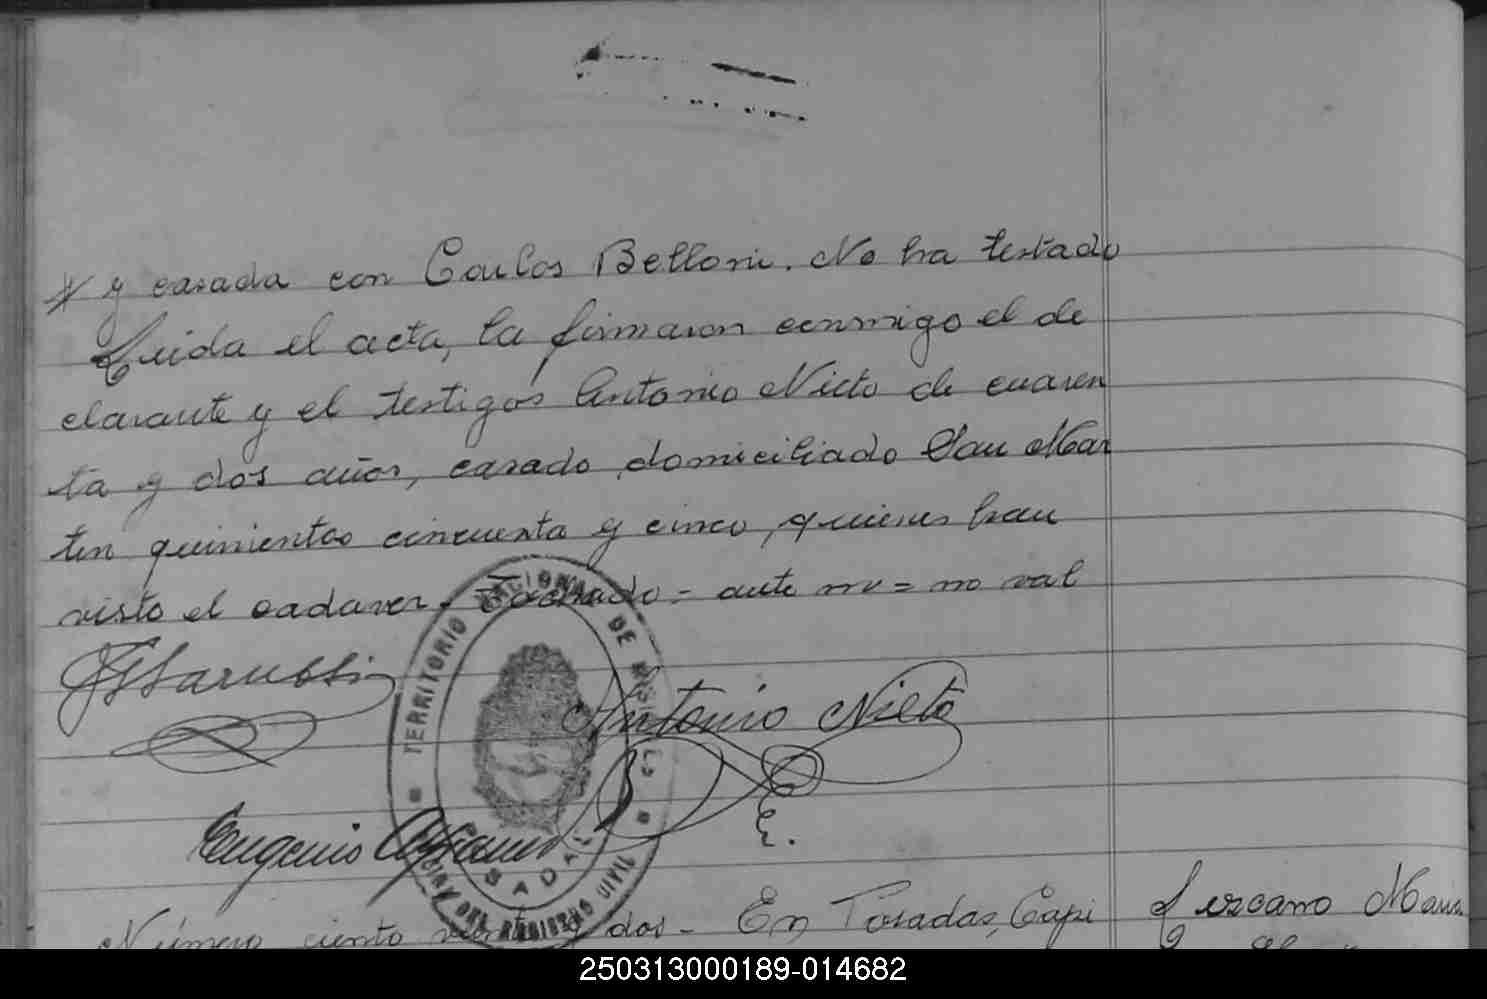 y casada con Carlos Belloni. No ha testado
Leida el acta, la firmaron conmigo el de
clarante y el testigos Antonio Nieto de cuaren
ta y dos años, casado, domiciliado San Mar
tin quinientos cincuenta y cinco, quienes han
visto el cadaver. - Tachado - ante mi = no val
TERRITORIO NACIONAL DE MISIONES
Antonio Nieto
E.
Eugenio
DEL REGISTRO CIVIL
Número ciento veinte y dos - En Posadas, Capi
Lezcano Maria
250313000189-014682